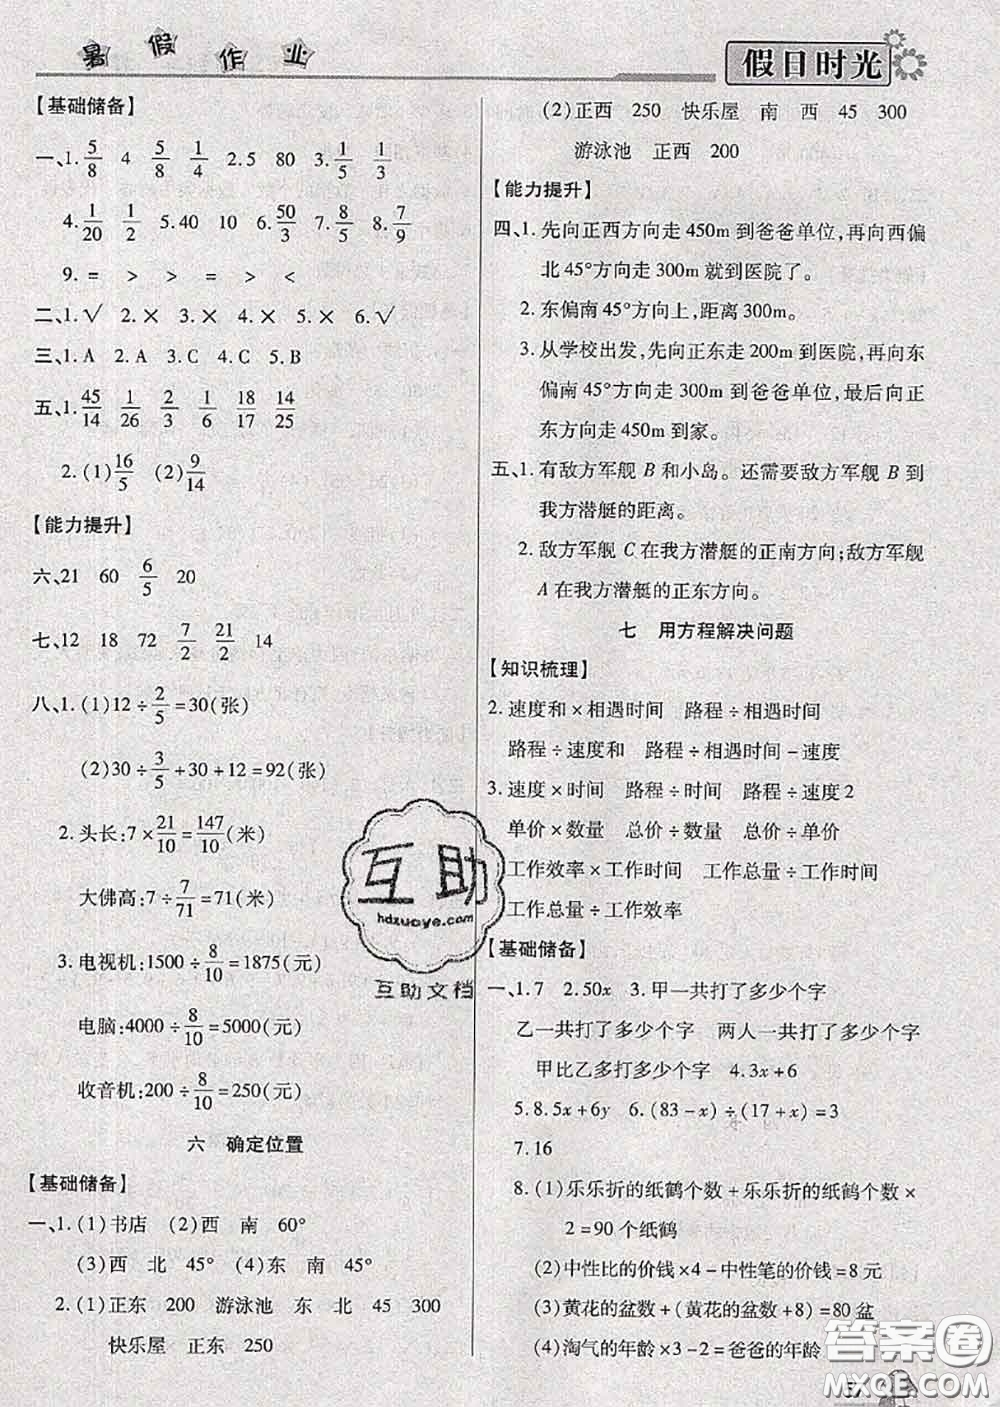 暑假作业
假日时光
【基础储备】
一、1. 5/8 4 5/8 1/4 2.5 80 3. 1/5 1/3
4. 1/20 1/2 5.40 10 6. 50/3 7. 8/5 8. 7/9
9. = > > < =
二、1.√ 2.× 3.× 4.× 5.× 6.√
三、1.A 2.A 3.C 4.C 5.B
五、1. 45/14 1/26 2/3 1/6 18/17 14/25
2.(1) 16/5 (2) 9/14
【能力提升】
六、21 60 6/5 20
七、12 18 72 7/2 21/2 14
八、1.(1)12÷2/5=30(张)
(2)30÷3/5+30+12=92(张)
2.头长:7×21/10=147/10(米)
大佛高:7÷7/71=71(米)
3.电视机:1500÷8/10=1875(元)
电脑:4000÷8/10=5000(元)
收音机:200÷8/10=250(元)
六 确定位置
【基础储备】
一、1.(1)书店 (2)西 南 60°
(3)西 北 45° (4)东 南 45°
2.(1)正东 200 游泳池 东 北 45 300
快乐屋 正东 250
(2)正西 250 快乐屋 南 西 45 300
游泳池 正西 200
【能力提升】
四、1.先向正西方向走450m到爸爸单位,再向西偏
北45°方向走300m就到医院了。
2.东偏南45°方向上,距离300m。
3.从学校出发,先向正东走200m到医院,再向东
偏南45°方向走300m到爸爸单位,最后向正
东方向走450m到家。
五、1.有敌方军舰B和小岛。还需要敌方军舰B到
我方潜艇的距离。
2.敌方军舰C在我方潜艇的正南方向;敌方军舰
A在我方潜艇的正东方向。
七 用方程解决问题
【知识梳理】
2.速度和×相遇时间 路程÷相遇时间
路程÷速度和 路程÷相遇时间-速度
3.速度×时间 路程÷时间 路程÷速度2
单价×数量 总价÷数量 总价÷单价
工作效率×工作时间 工作总量÷工作时间
工作总量÷工作效率
【基础储备】
一、1.7 2.50x 3.甲一共打了多少个字
乙一共打了多少个字 两人一共打了多少个字
甲比乙多打多少个字 4.3x+6
5.8.5x+6y 6.(83-x)÷(17+x)=3
7.16
8.(1)乐乐折的纸鹤个数+乐乐折的纸鹤个数×
2=90个纸鹤
(2)中性比的价钱×4-中性笔的价钱=8元
(3)黄花的盆数+(黄花的盆数+8)=80盆
(4)淘气的年龄×3-2=爸爸的年龄
互助
hdzuoye.com
互助文档
答案圈
MXQE.COM